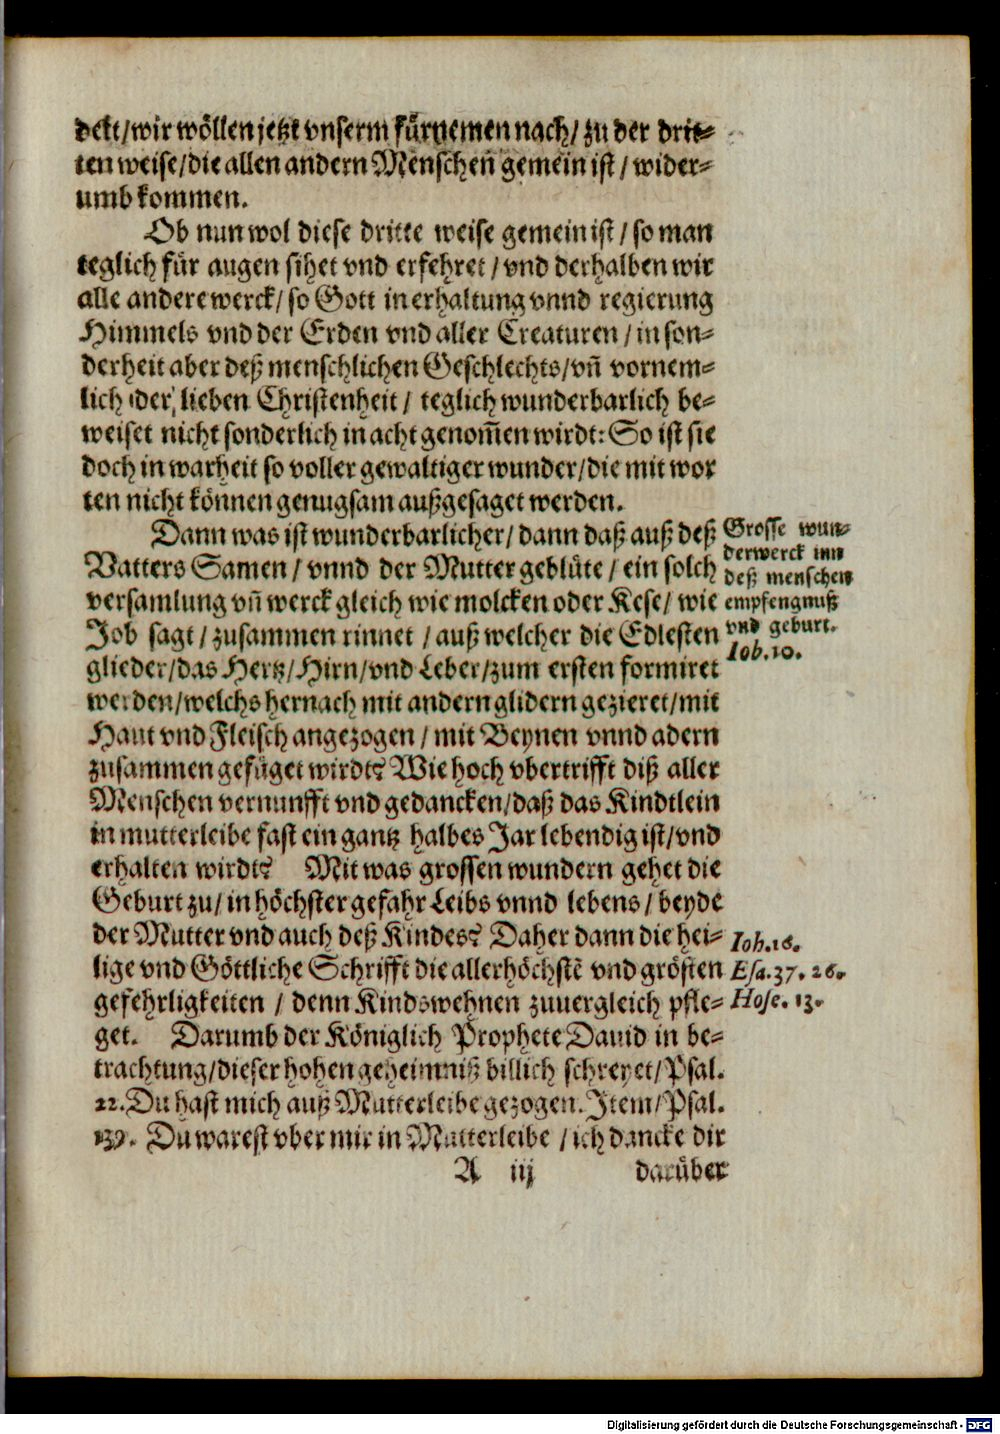 delt/wir wöllen jetzt vnserm fürnemen nach/zu der drit⸗
ten weise/die allen andern Menschen gemein ist/wider⸗
umb kommen.
Ob nun wol diese dritte weise gemein ist/so man
teglich für augen sihet vnd erfehret/vnd derhalben wir
alle andere werck/so Gott in erhaltung vnnd regierung
Himmels vnd der Erden vnd aller Creaturen/in son⸗
derheit aber deß menschlichen Geschlechts/vñ vornem⸗
lich der lieben Christenheit/teglich wunderbarlich be⸗
weiset nicht sonderlich in acht genom̃en wirdt: So ist sie
doch in warheit so voller gewaltiger wunder/die mit wor
ten nicht können genugsam außgesaget werden.
Dann was ist wunderbarlicher/dann daß auß deß
Vatters Samen/vnnd der Mutter geblüte/ein solch
versamlung vñ werck gleich wie molcken oder Kese/wie
Job sagt/zusammen rinnet/auß welcher die Edlesten
glieder/das Hertz/Hirn/vnd Leber/zum ersten formiret
werden/welchs hernach mit andern glidern gezieret/mit
Haut vnd Fleisch angezogen/mit Beynen vnnd adern
zusammen gefüget wirdt? Wie hoch vbertrifft diß aller
Menschen vernunfft vnd gedancken/daß das Kindtlein
in mutterleibe fast ein gantz halbes Jar lebendig ist/vnd
erhalten wirdt? Mit was grossen wundern gehet die
Geburt zu/in höchster gefahr Leibs vnnd lebens/beyde
der Mutter vnd auch deß Kindes? Daher dann die hei⸗
lige vnd Göttliche Schrifft die allerhöchstẽ vnd grösten
gefehrligkeiten/denn Kindswehnen zuuergleich pfle⸗
get. Darumb der Königlich Prophete Dauid in be⸗
trachtung/dieser hohen geheimniß billich schreyet/Psal.
22. Du hast mich auß Mutterleibe gezogen. Item/Psal.
139. Du warest vber mir in Mutterleibe/ich dancke dir
A iij darüber
Grosse wun⸗
derwerck inn
deß menschen
empfengnuß
vnd geburt.
Iob. 10.
Ioh. 16.
Esa. 37. 26.
Hose. 13.
Digitalisierung gefördert durch die Deutsche Forschungsgemeinschaft - DFG